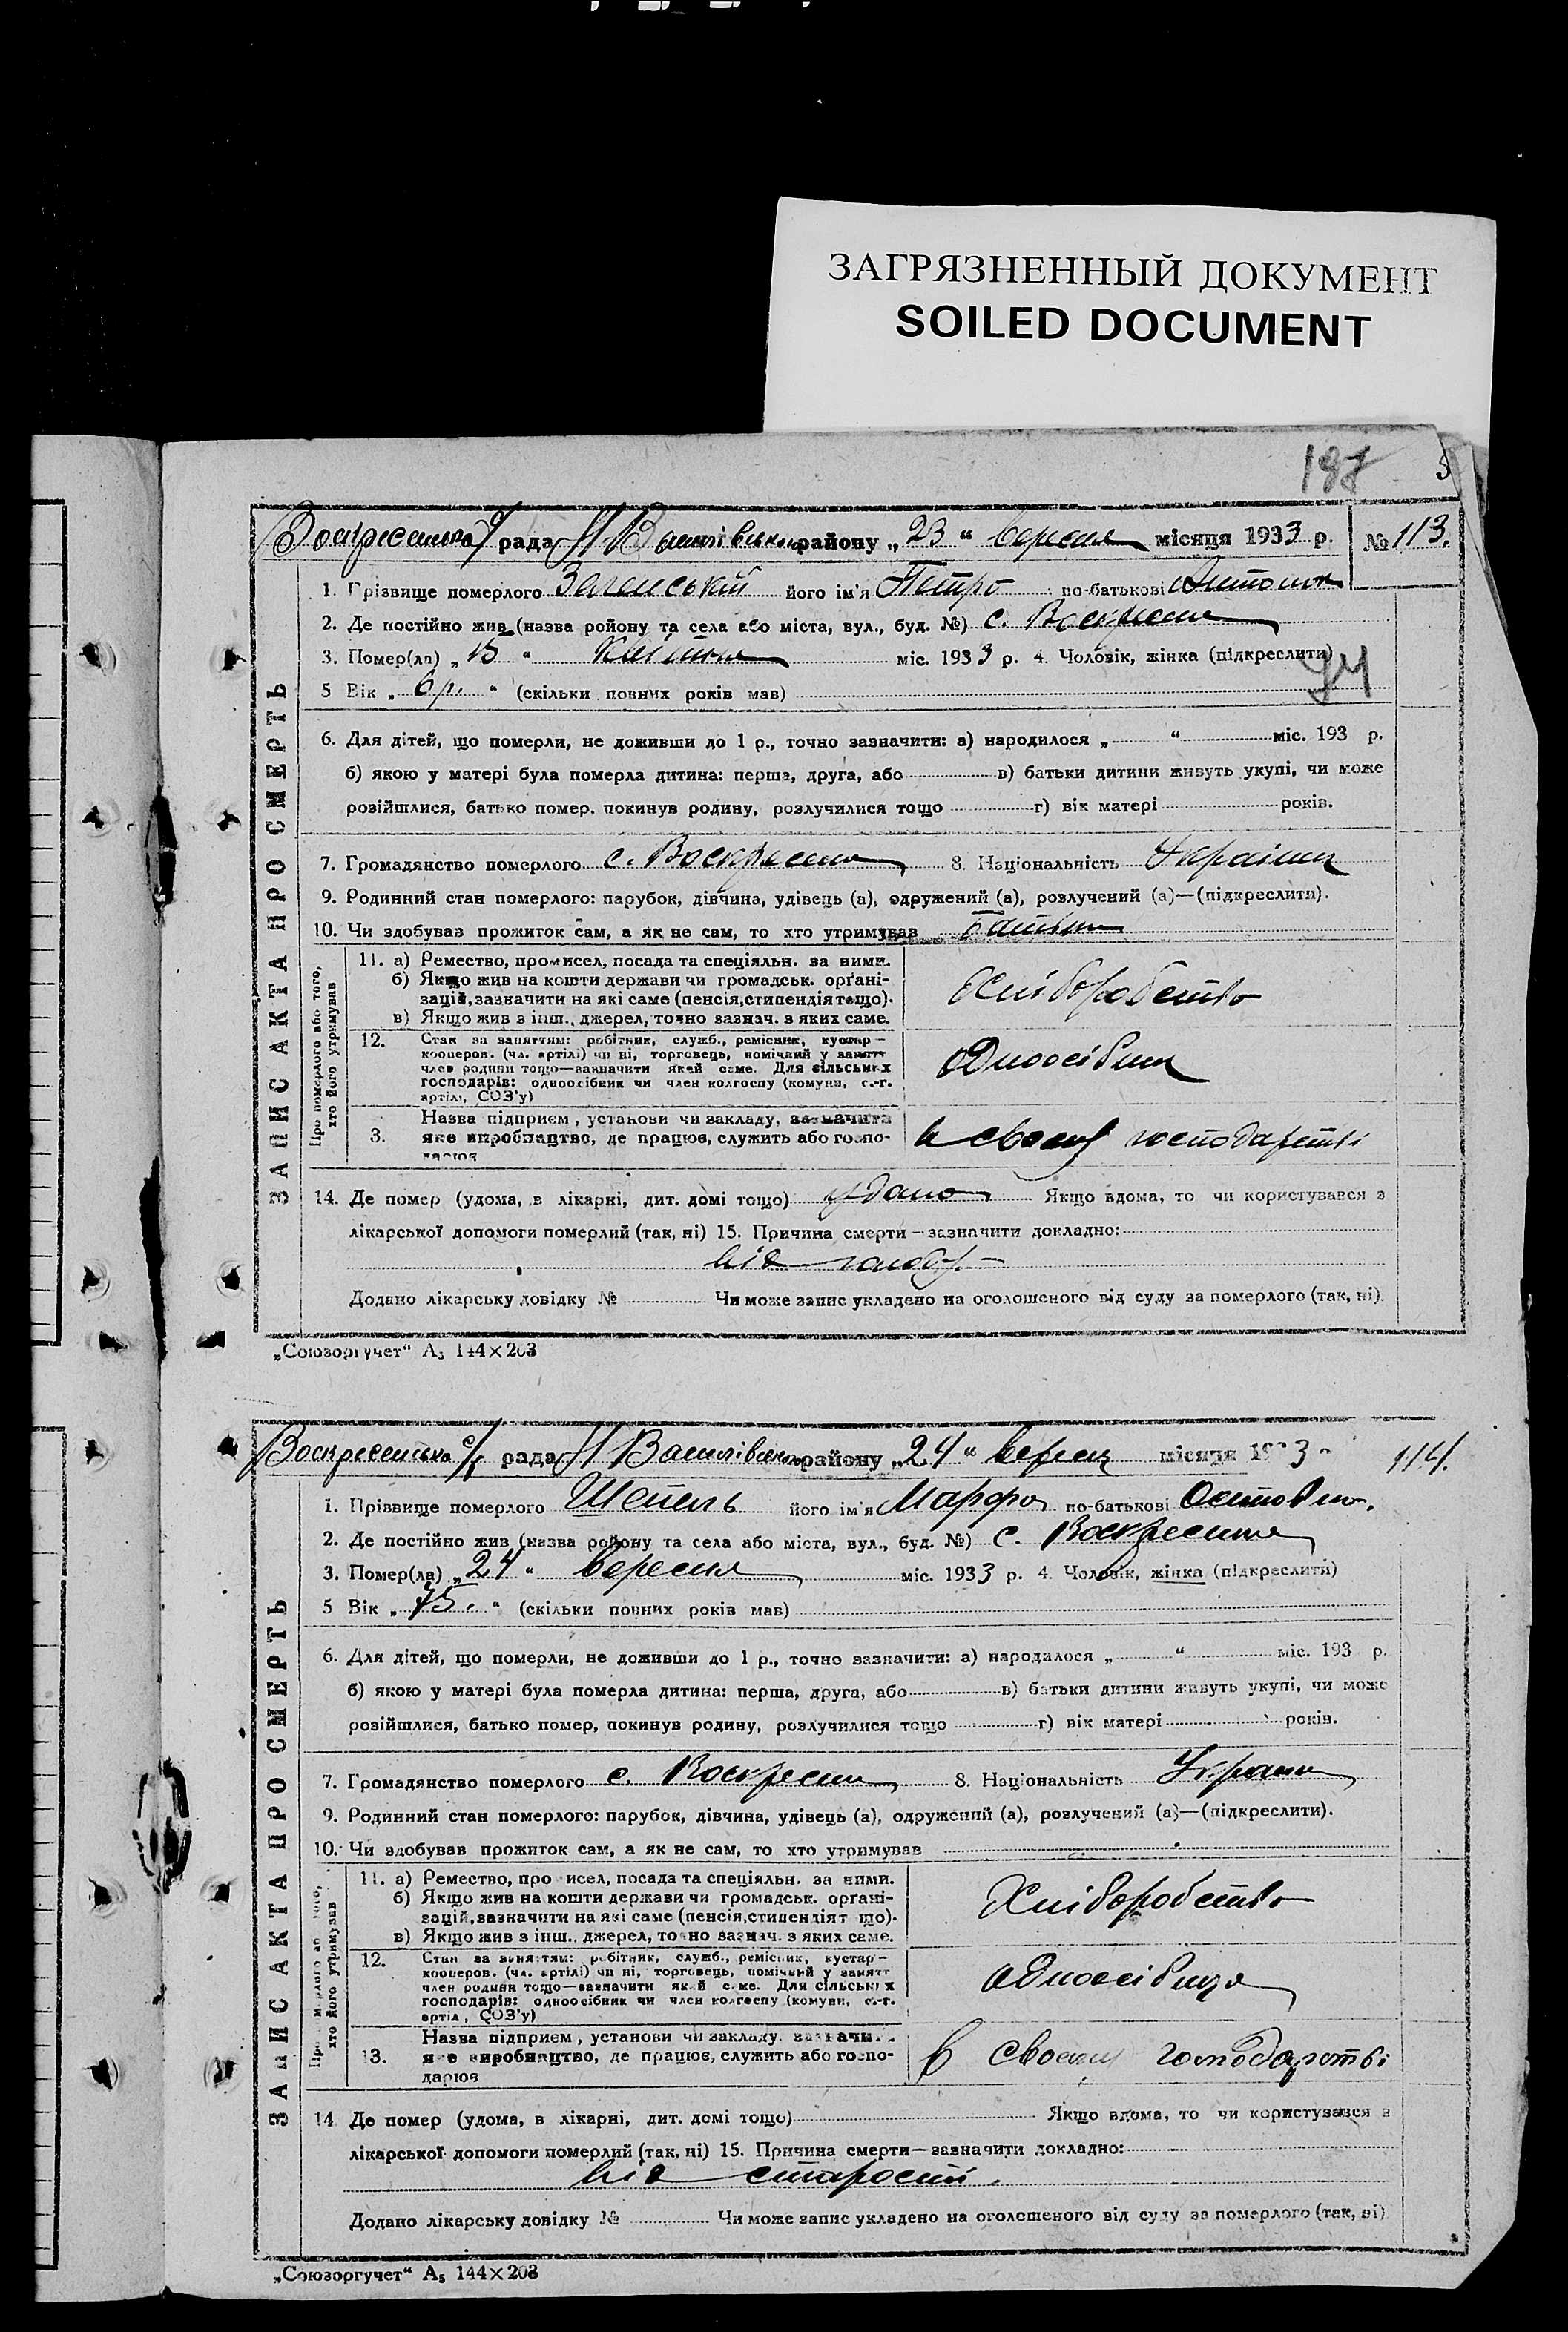 ЗАГРЯЗНЕННЫЙ ДОКУМЕНТ
SOILED DOCUMENT
5
рада району „23“ вересня місяця 1933 р. № 113.
1. Прізвище померлого його ім'я Петро по-батькові
2. Де постійно жив (назва району та села або міста, вул., буд. №) с.
3. Помер(ла) „15“ квітня міс. 1933 р. 4. Чоловік, жінка (підкреслити)
5 Вік „6 р.“ (скільки повних років мав)
ЗАПИС АКТА ПРО СМЕРТЬ
6. Для дітей, що померли, не доживши до 1 р., точно зазначити: а) народилося „ “ міс. 193 р.
б) якою у матері була померла дитина: перша, друга, або в) батьки дитини живуть укупі, чи може
розійшлися, батько помер, покинув родину, розлучилися тощо г) вік матері років.
7. Громадянство померлого с. 8. Національність
9. Родинний стан померлого: парубок, дівчина, удівець (а), одружений (а), розлучений (а)—(підкреслити).
10. Чи здобував прожиток сам, а як не сам, то хто утримував
Про померлого або того, хто його утримував
11. а) Ремество, промисел, посада та спеціяльн. за ними.
б) Якщо жив на кошти держави чи громадськ. орґані-
зацій, зазначити на які саме (пенсія, стипендія тощо).
в) Якщо жив з інш., джерел, точно зазнач. з яких саме.
Хліборобство
12. Стан за заняттям: робітник, служб., ремісник, кустар—
кооперов. (чл. артілі) чи ні, торговець, помічний у занятт
член родини тощо—зазначити який саме. Для сільських
господарів: одноосібник чи член колгоспу (комуни, с.-г.
артілі, СОЗ'у)
3. Назва підприєм, установи чи закладу, зазначити
яке виробництво, де працює, служить або госпо-
дарює
в своему господарстві
14. Де помер (удома, в лікарні, дит. домі тощо) удома Якщо вдома, то чи користувався з
лікарської допомоги померлий (так, ні) 15. Причина смерти—зазначити докладно:
від голоду
Додано лікарську довідку № Чи може запис укладено на оголошеного від суду за померлого (так, ні).
„Союзоргучет“ А5 144×203
рада району „24“ місяця 1933 114.
1. Прізвище померлого Шепель його ім'я Марфа по-батькові
2. Де постійно жив (назва району та села або міста, вул., буд. №) с.
3. Помер(ла) „24“ вересня міс. 1933 р. 4. Чоловік, жінка (підкреслити)
5 Вік „75.“ (скільки повних років мав)
ЗАПИС АКТА ПРО СМЕРТЬ
6. Для дітей, що померли, не доживши до 1 р., точно зазначити: а) народилося „ “ міс. 193 р.
б) якою у матері була померла дитина: перша, друга, або в) батьки дитини живуть укупі, чи може
розійшлися, батько помер, покинув родину, розлучилися тощо г) вік матері років.
7. Громадянство померлого с. 8. Національність
9. Родинний стан померлого: парубок, дівчина, удівець (а), одружений (а), розлучений (а)—(підкреслити).
10. Чи здобував прожиток сам, а як не сам, то хто утримував
11. а) Ремество, промисел, посада та спеціяльн. за ними.
б) Якщо жив на кошти держави чи громадськ. орґані-
зацій, зазначити на які саме (пенсія, стипендія тощо).
в) Якщо жив з інш., джерел, точно зазнач. з яких саме.
Хліборобство
12. Стан за заняттям: робітник, служб., ремісник, кустар—
кооперов. (чл. артілі) чи ні, торговець, помічний у занятт
член родини тощо—зазначити який саме. Для сільських
господарів: одноосібник чи член колгоспу (комуни, с.-г.
артіл, СОЗ'у)
13. Назва підприєм, установи чи закладу, зазначи
яке виробництво, де працює, служить або госпо-
дарює
в своему господарстві
14 Де помер (удома, в лікарні, дит. домі тощо) Якщо вдома, то чи користувався з
лікарської допомоги померлий (так, ні) 15. Причина смерти—зазначити докладно:
від старости.
Додано лікарську довідку № Чи може запис укладено на оголошеного від суду за померлого (так, ні)
„Союзоргучет“ А5 144×203